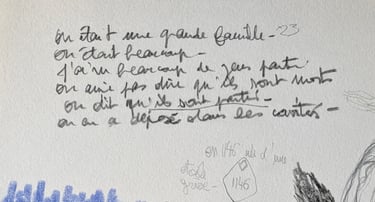 on était une grande famille - 23
on était beaucoup -
j'ai vu beaucoup de gens partir
on aime pas dire qu'ils sont morts
on dit qu'ils sont partis -
on en a déposé dans les
on 1146 d'une
étoile
1146